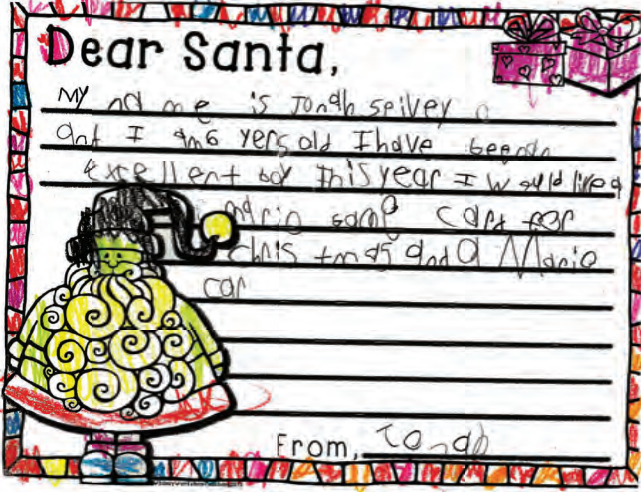 Dear Santa,
My name is Jonah Spivey
and I am 6 yers old I have been an
excellent boy this year I would like a
mario game card for
chris tmas and a Mario
car
From, Jonah